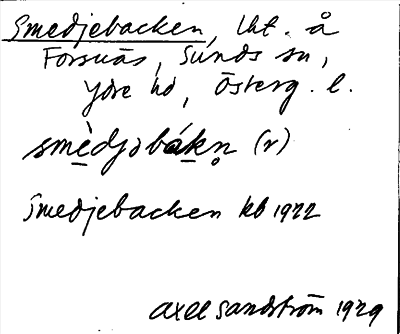 Smedjebacken, lht. å
Forsnäs, Sunds sn,
Ydre hd, Österg. l.
smèdjobákn̥ (r)
Smedjebacken kb 1922
Axel Sandström 1929